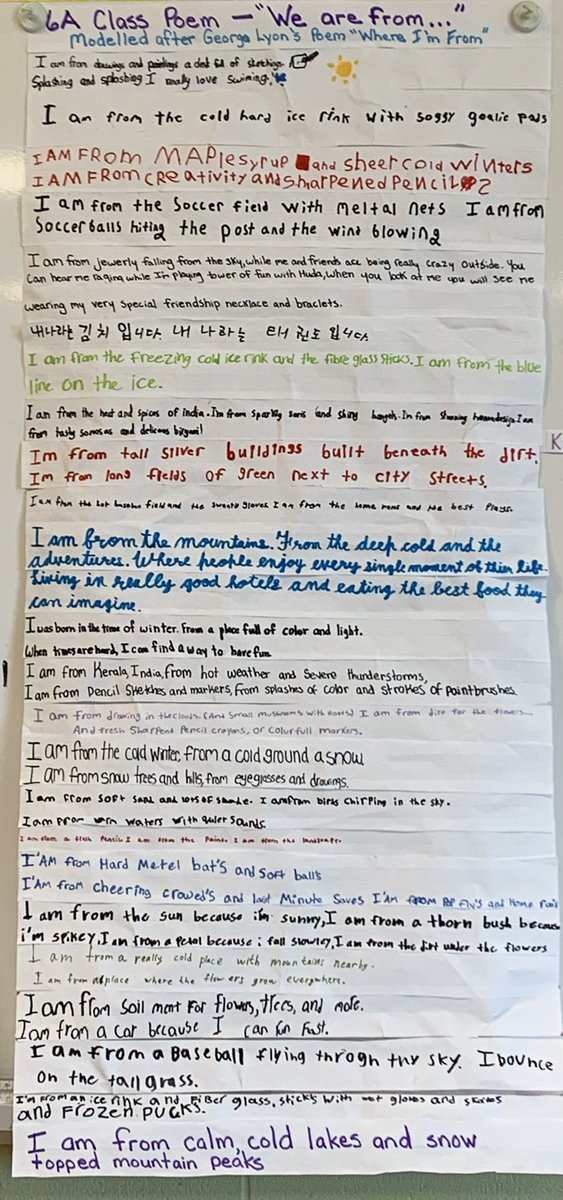 6A Class Poem - "We are from..."
Modelled after George Lyon's Poem "Where I'm From"
I am from drawings and paintings a desk full of sketchings.
Splashing and sploshing I really love swiming.
I am from the cold hard ice rink with soggy goalie pads
I AM FROM MAPlesyrup and sheer cold winters
I AM FROM CReativity and sharpened pencil #2
I am from the Soccer field with meltal nets I am from
Soccer balls hiting the post and the wind blowing
I am from jewerly falling from the sky, while me and friends are being really crazy outside. You
can hear me raging while I'm playing tower of fun with Huda, when you look at me you will see me
wearing my very special friendship necklace and braclets.
내나라는 김치 입니다. 내 나라는 태권도 입니다.
I am from the freezing cold ice rink and the fibre glass sticks. I am from the blue
line on the ice.
I am from the heat and spices of india. I'm from sparkly saris and shiny I'm from I am
from tasty somosas and delicious biryani!
Im from tall silver buildings built beneath the dirt.
Im from long fields of green next to city streets.
I am from the hot baseball field and the sweaty gloves I am from the home runs and the best plays.
I am from the mountains. From the deep cold and the
adventures. Where people enjoy every single moment of thier life.
Living in really good hotels and eating the best food they
can imagine.
I was born in the time of winter. From a place full of color and light.
When times are hard, I can find a way to have fun.
I am from Kerala, India, from hot weather and severe thunderstorms,
I am from pencil sketches and markers, from splashes of color and strokes of paintbrushes.
I am from drawing in the clouds. (And small mushrooms with roots) I am from dirt for the flowers...
And fresh sharpend pencil crayons, or colorfull markers.
I am from the cold winter, from a cold ground a snow
I am from snow trees and hills, from eyeglasses and drawings.
I am from soft sand and lots of shade. I am from birds chirpping in the sky.
I am from warm waters with quiet sounds.
I am from a fresh pencil. I am from the paint. I am from the landscape.
I'AM from Hard Metel bat's and soft balls
I'AM from cheering crowed's and last Minute saves I'AM from POP fly's and Home run's
I am from the sun because i'm sunny, I am from a thorn bush because
i'm spikey, I am from a petal because i fall slowley, I am from the dirt under the flowers
I am from a really cold place with mountains nearby.
I am from a place where the flowers grow everywhere.
I am from soil ment for flowers, trees, and more.
I am from a car because I can run fast.
I am from a Baseball flying throgh thy sky. I bounce
on the tall grass.
I'm from an ice rink and fiber glass, sticks with wet gloves and skates
and frozen pucks.
I am from calm, cold lakes and snow
topped mountain peaks